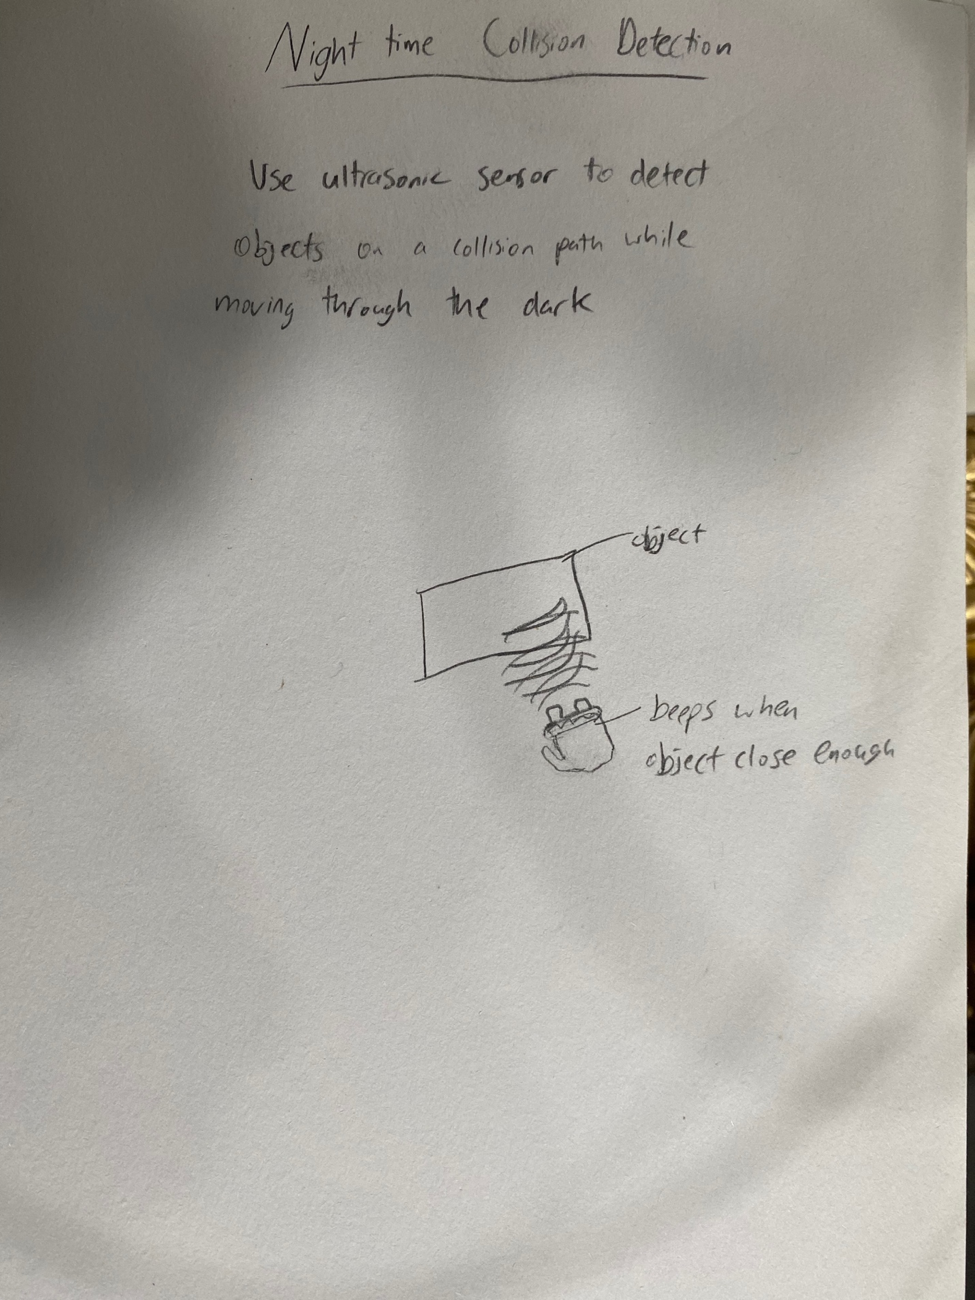 Night time Collision Detection
Use ultrasonic sensor to detect
Objects on a collision path while
moving through the dark
object
beeps when
object close enough